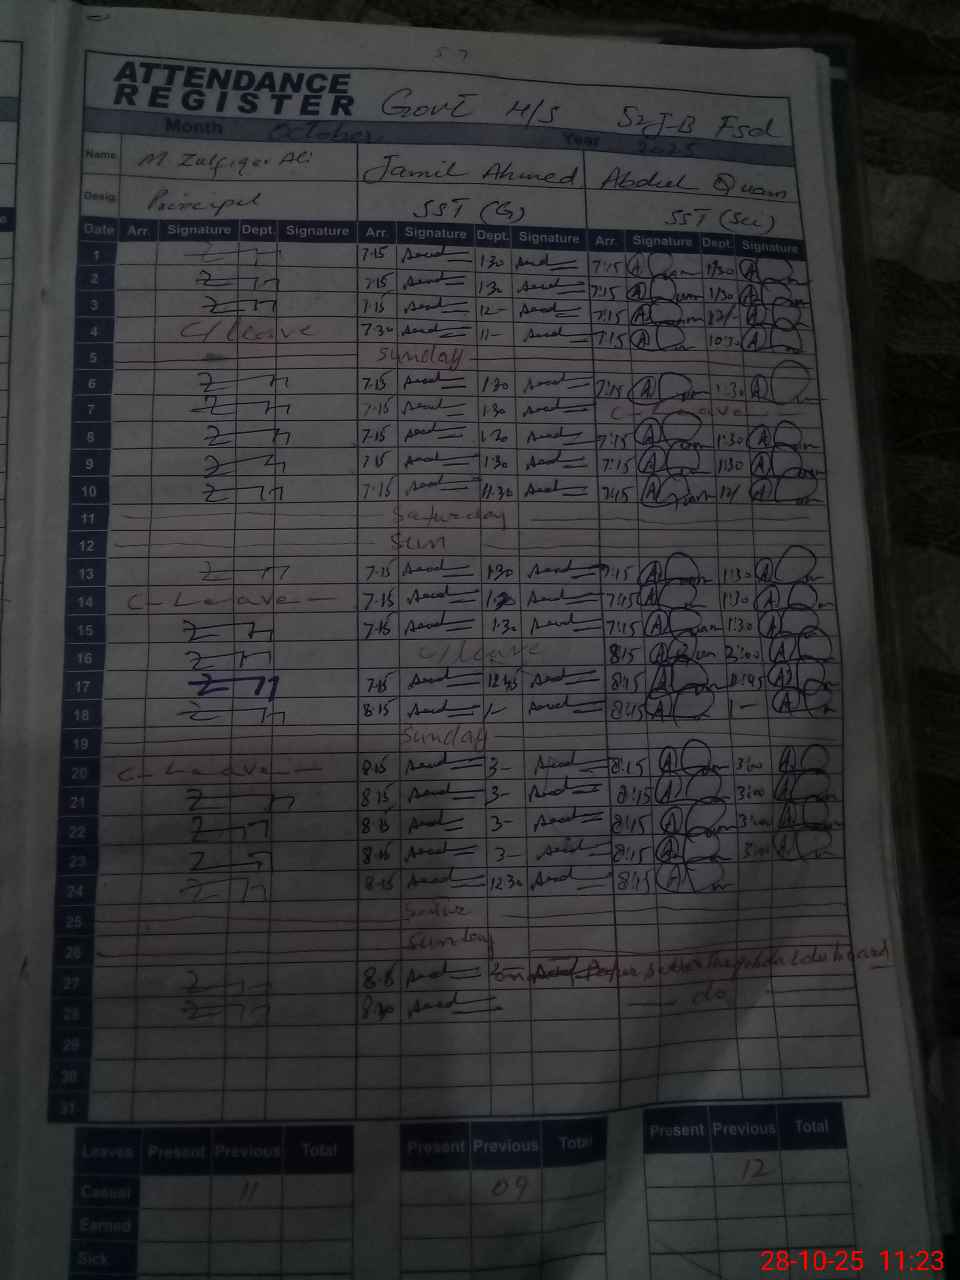 57
ATTENDANCE
REGISTER Govt H/S 52 J-B Fsd
Month October Year 2025
Name M Zulfiqar Ali Jamil Ahmed Abdul
Desig. Principal SST (G) SST (Sci)
Date Arr. Signature Dept. Signature Arr. Signature Dept. Signature Arr. Signature Dept. Signature
1 7.15 1.30 7:15 1/30
2 7.15 1.30 7:15 1/30
3 7.15 12- 7:15 12/-
4 C/leave 7.30 11- 7:15 10:30
5 Sunday
6 7.15 1.30 7:15 1:30
7 7.15 1.30 C-Leave
8 7.15 1.30 7:15 1:30
9 7.15 1:30 7:15 1:30
10 7.15 11.30 7:15 12/
11 Saturday
12 Sun
13 7.15 1.30 7:15 1:30
14 C-Leave- 7.15 7:15 1:30
15 7.15 1.30 7:15 1:30
16 C/leave 8:15 2:00
17 7.15 12.45 8:15
18 8.15 1- 8:15 1-
19 Sunday
20 C-Leave- 8.15 3- 8:15 3:00
21 8.15 3- 8:15 3:00
22 8.15 3- 8:15 3:00
23 8.15 3- 8:15 3:00
24 8.15 12.30 8:15
25 Satur
26 Sunday
27 8.15 board
28 8.30 do
29
30
31
Leaves Present Previous Total Present Previous Total Present Previous Total
Casual 11 09 12
Earned
Sick
28-10-25 11:23